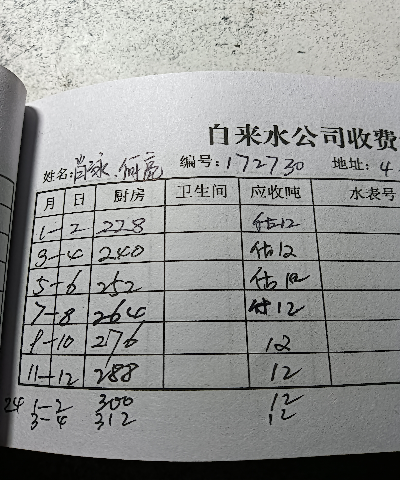 白来水公司收费
姓名:肖泳、何亮 编号:172730 地址:4
月 日 厨房 卫生间 应收吨 水表号
1-2 228 估12
3-4 240 估12
5-6 252 估12
7-8 264 估12
9-10 276 12
11-12 288 12
24 1-2 300 12
3-4 312 12